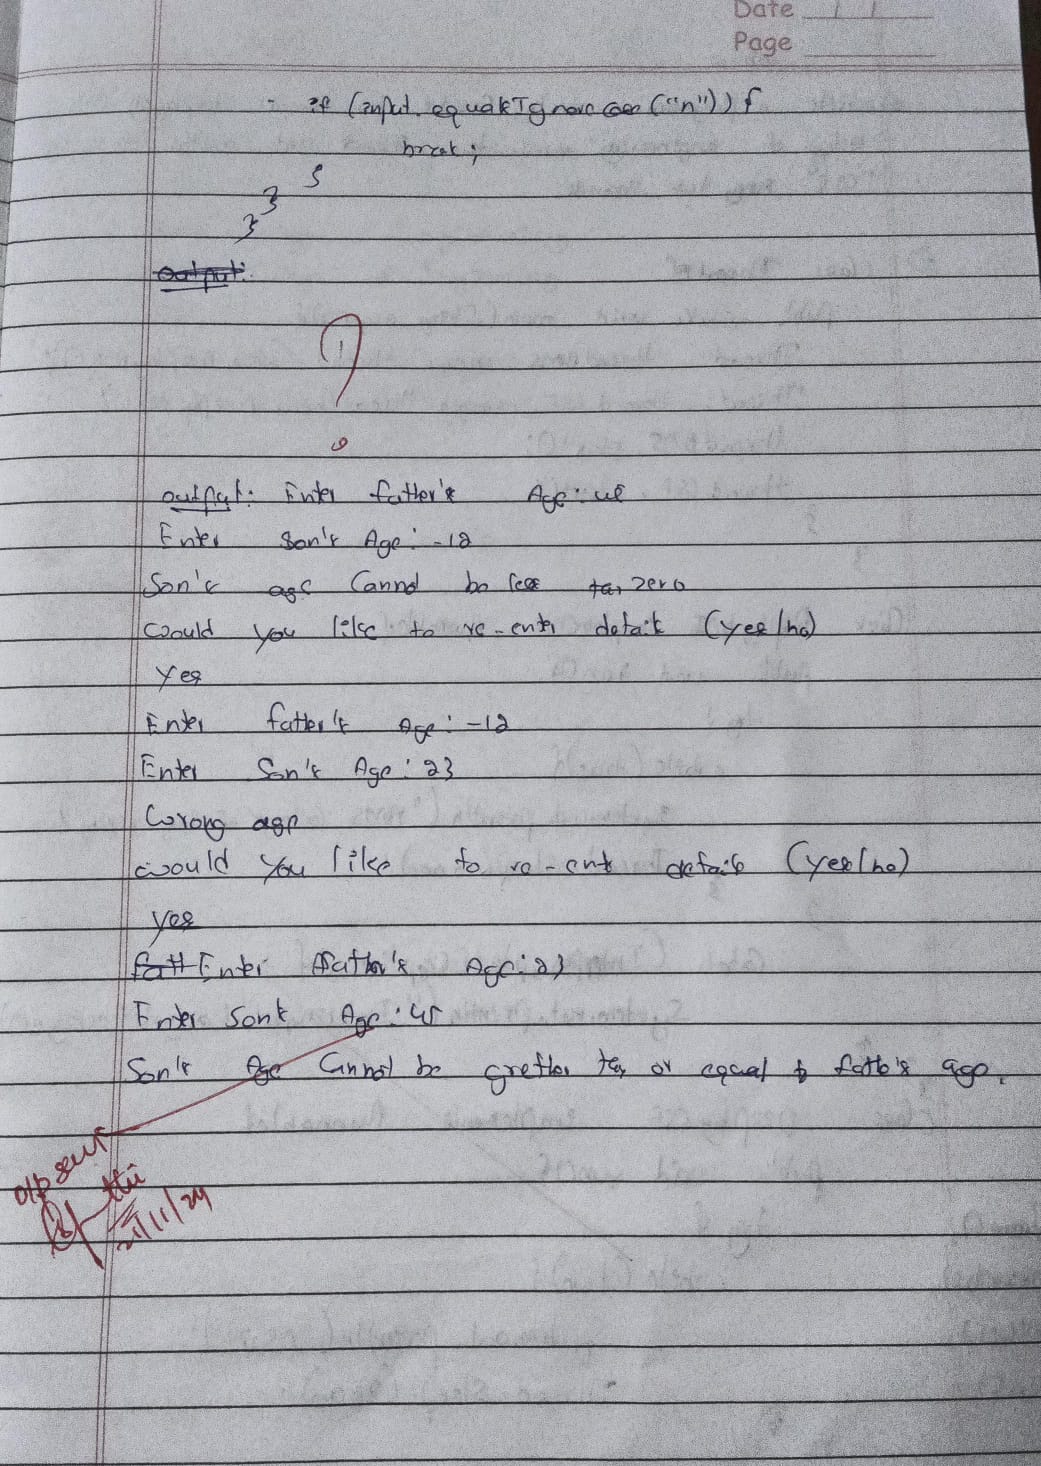 Date / /
Page
if (input.equalsIgnoreCase("n")) {
break;
}
}
}
output:
?
output: Enter father's Age: 45
Enter Son's Age: -12
Son's age Cannot be less than zero
Would you like to re-enter details (yes/no)
Yes
Enter father's Age: -12
Enter Son's Age: 23
Wrong age
would you like to re-ente details (yes/no)
yes
Enter father's Age: 23
Enter Sons Age: 45
Son's Age Cannot be greather than or equal to father's age.
o/p seen
21/11/24